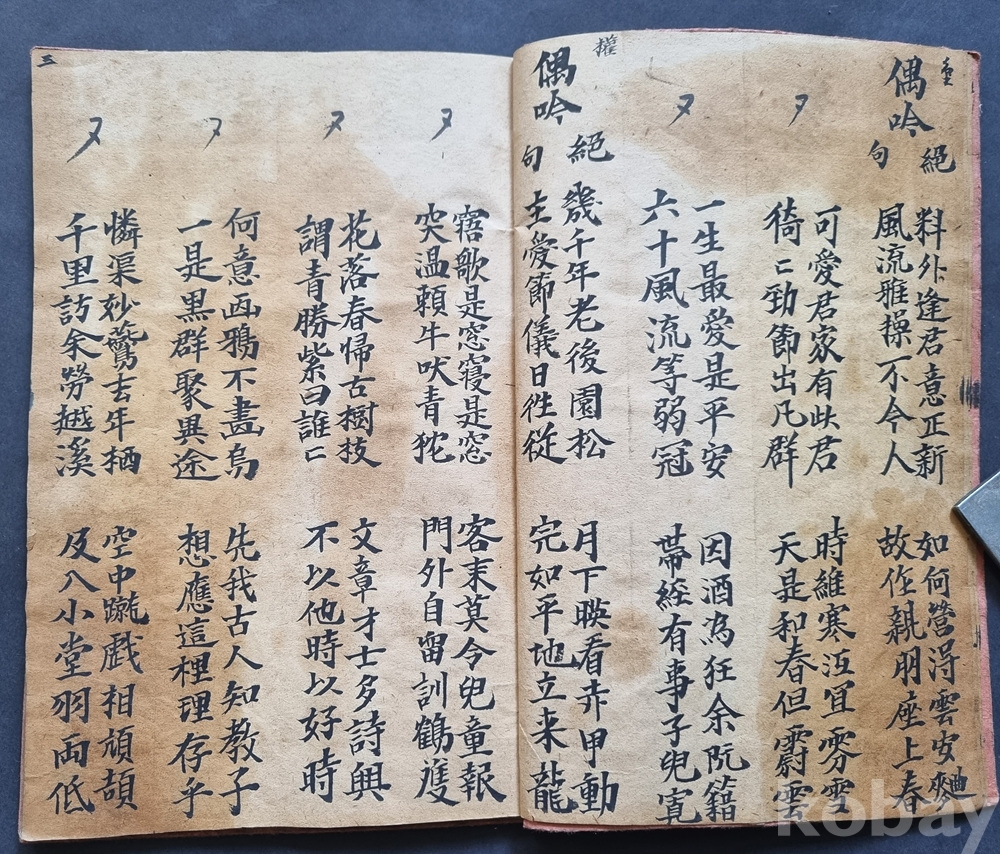 偶吟 絕句
料外逢君意正新 如何營淂雲安麯
風流雅操不令人 故作親朋座上春
又
可愛君家有此君 時維寒沍宜雰雪
猗〻勁節出凡群 天是和春但蔚雲
又
一生最愛是平安 因酒為狂余阮籍
六十風流等弱冠 帶經有事子兒寬
偶吟 絕句
幾千年老後園松 月下暎看卉甲動
主愛節儀日徃従 完如平地立来龍
又
寤歌是窓寢是窓 客来莫令兒童報
突温頼牛吠青狵 門外自留訓鶴䨇
又
花落春帰古樹枝 文章才士多詩興
謂青勝紫曰誰〻 不以他時以好時
又
何意画鴉不畫烏 先我古人知教子
一是黒群聚異途 想應這裡理存乎
又
憐渠妙鷰去年栖 空中蹴戲相頏頡
千里訪余勞越溪 及入小堂羽両低
三
kobay